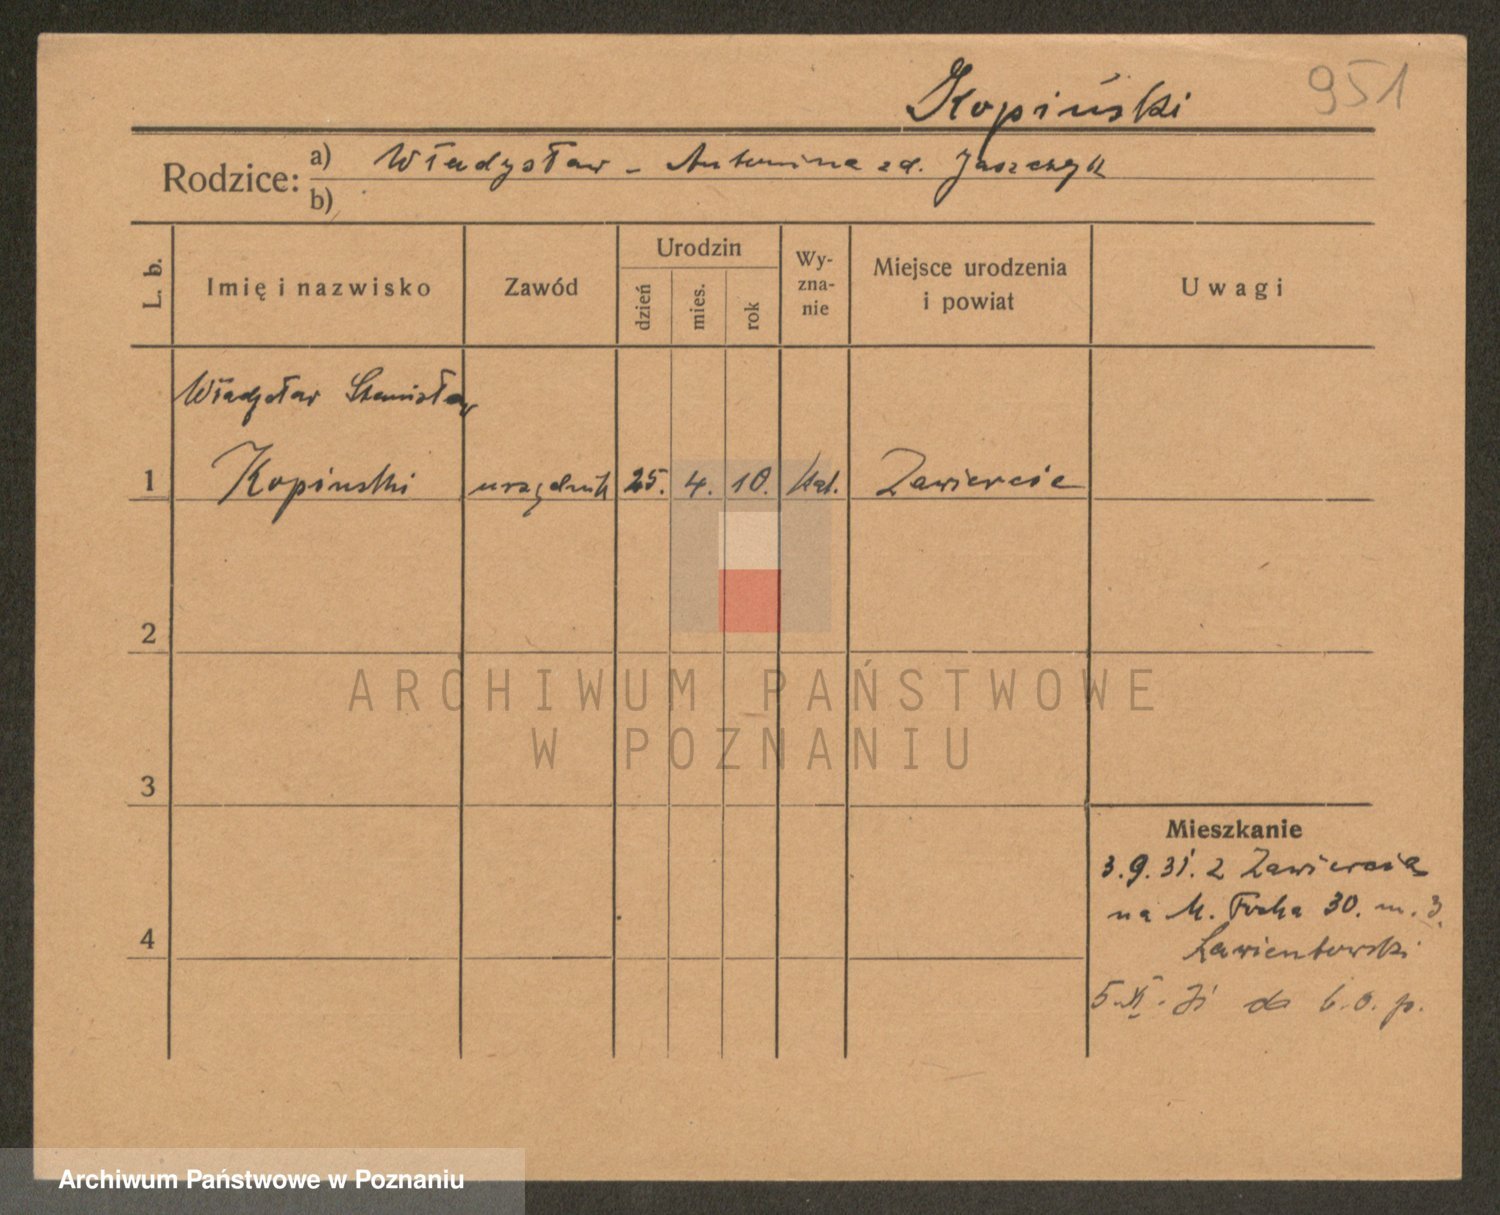 951
Kopiński
Rodzice: a) Władysław - Antonina zd. Jaszczyk
b)
L. b.
Imię i nazwisko
Zawód
Urodzin
dzień
mies.
rok
Wy-
zna-
nie
Miejsce urodzenia
i powiat
Uwagi
Władysław Stanisław
1 Kopinski urzędnik 25. 4. 10. kat. Zawiercie
2
3
4
ARCHIWUM PAŃSTWOWE
W POZNANIU
Mieszkanie
3.9.31. z Zawiercia
na M. Focha 30. m. 3.
Lawientowski
5.XI.31 do
Archiwum Państwowe w Poznaniu